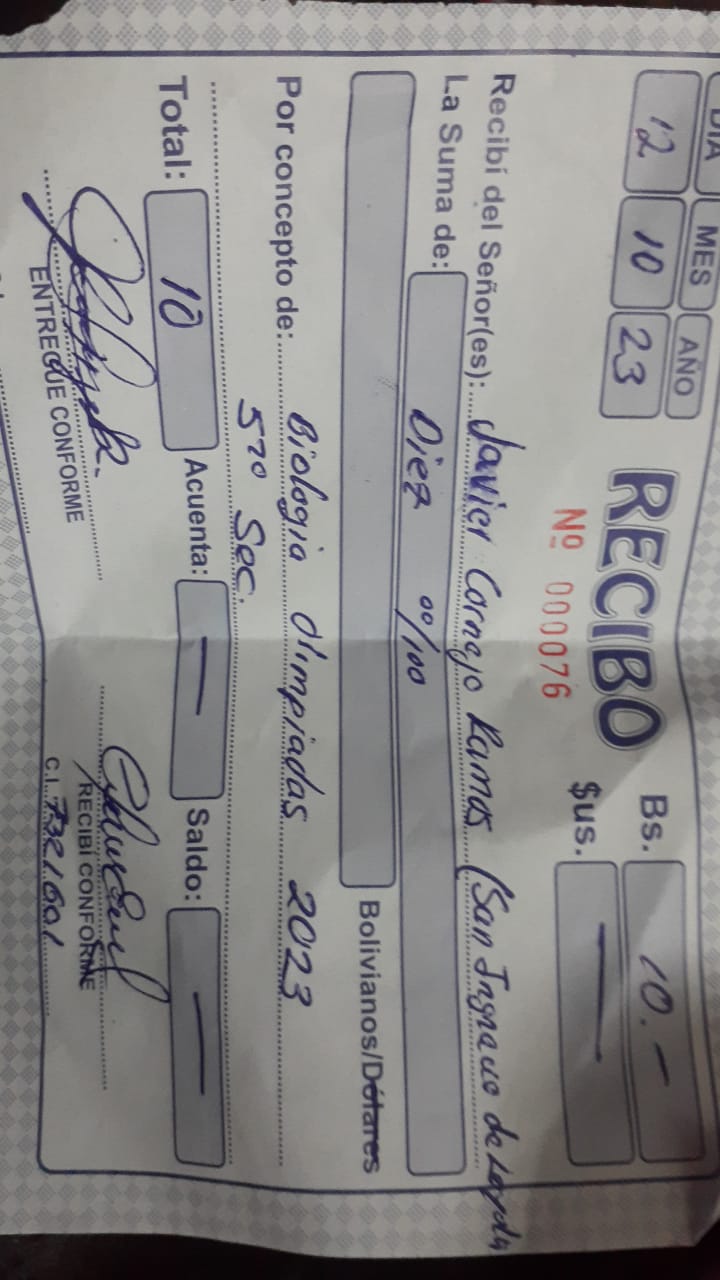 DIA MES AÑO
12 10 23
RECIBO
Nº 000076
Bs. 10.-
$us. —
Recibí del Señor(es): Javier Cornejo Ramos (San Ignacio de Loyola
La Suma de: Diez 00/100
Bolivianos/Dólares
Por concepto de: Biologia Olimpiadas 2023
5to Sec.
Total: 10 Acuenta: — Saldo: —
ENTREGUE CONFORME
RECIBÍ CONFORME
C.I. 7321601